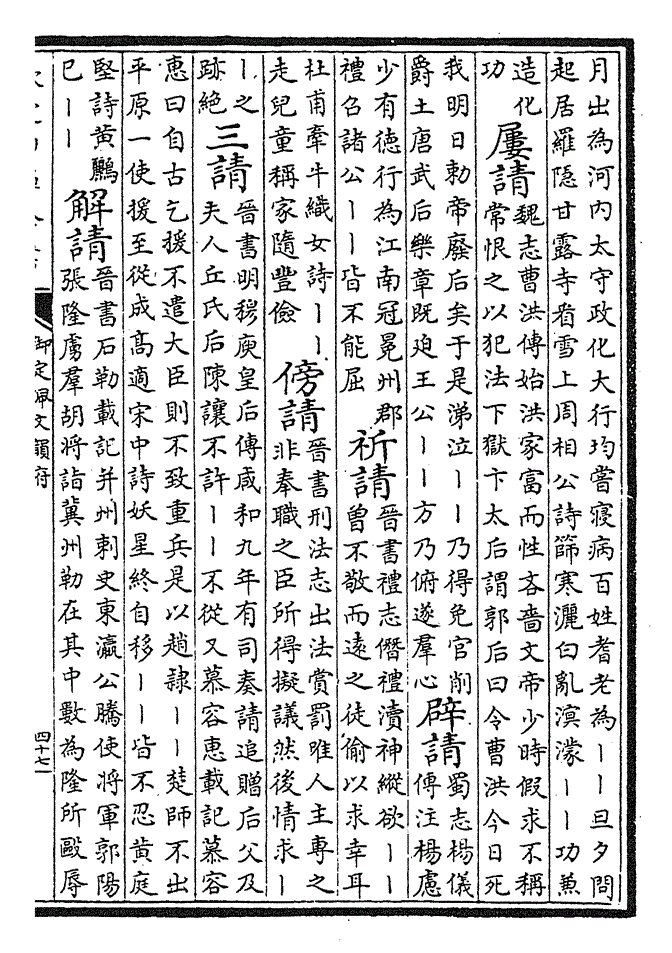 月出為河内太守政化大行均嘗寢病百姓耆老為||旦夕問
起居羅隱甘露寺看雪上周相公詩篩寒灑白亂溟濛||功兼
造化
功
屢請
魏志曹洪傳始洪家富而性吝嗇文帝少時假求不稱
常恨之以犯法下獄卞太后謂郭后曰令曹洪今日死
我明日勅帝廢后矣于是涕泣||乃得免官削
爵土唐武后樂章既迫王公||方乃俯遂羣心
辟請
蜀志楊儀
傳注楊慮
少有德行為江南冠冕州郡
禮召諸公||皆不能屈
祈請
晉書禮志僭禮瀆神縱欲||
曾不敬而遠之徒偷以求幸耳
杜甫牽牛織女詩||
走兒童稱家隨豐儉
傍請
晉書刑法志出法賞罰唯人主專之
非奉職之臣所得擬議然後情求|
|之
跡絶
三請
晉書明穆庾皇后傳咸和九年有司奏請追贈后父及
夫人丘氏后陳讓不許||不從又慕容恵載記慕容
恵曰自古乞援不遣大臣則不致重兵是以趙隸||楚師不出
平原一使援至從成高適宋中詩妖星終自移||皆不忍黄庭
堅詩黄鸝
已||
解請
晉書石勒載記并州刺史東瀛公騰使將軍郭陽
張隆虜羣胡將詣冀州勒在其中數為隆所毆辱
御定佩文韻府
四十七